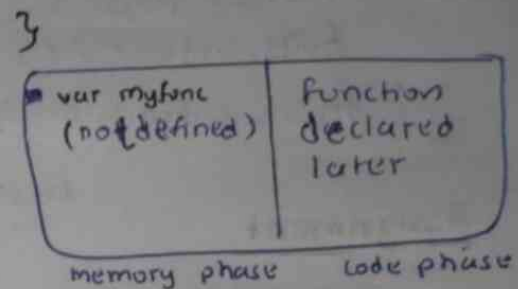 }
var myfunc
(not defined)
function
declared
later
memory phase code phase